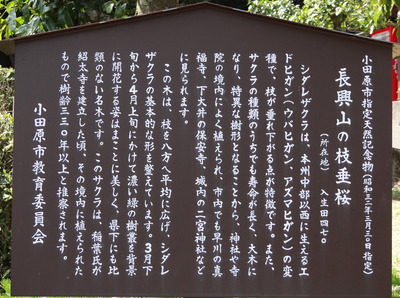 小田原市指定天然記念物(昭和三二年三月三〇日指定)
長興山の枝垂桜
(所在地) 入生田四七〇
シダレザクラは、本州中部以西に生えるエ
ドヒガン(ウバヒガン、アズマヒガン)の変
種で、枝が垂れ下がる点が特徴です。また、
サクラの種類のうちでも寿命が長く、大木に
なり、特異な樹形となることから、神社や寺
院の境内によく植えられ、市内でも早川の真
福寺、下大井の保安寺、城内の二宮神社など
に見られます。
この木は、枝を八方へ平均に広げ、シダレ
ザクラの基本的な形を整えています。3月下
旬から4月上旬にかけて濃い緑の樹叢を背景
に開花する姿はまことに美しく、県下にも比
類のない名木です。このサクラは、稲葉氏が
紹太寺を建立した頃、その境内に植えられた
もので樹齢三三〇年以上と推察されます。
小田原市教育委員会